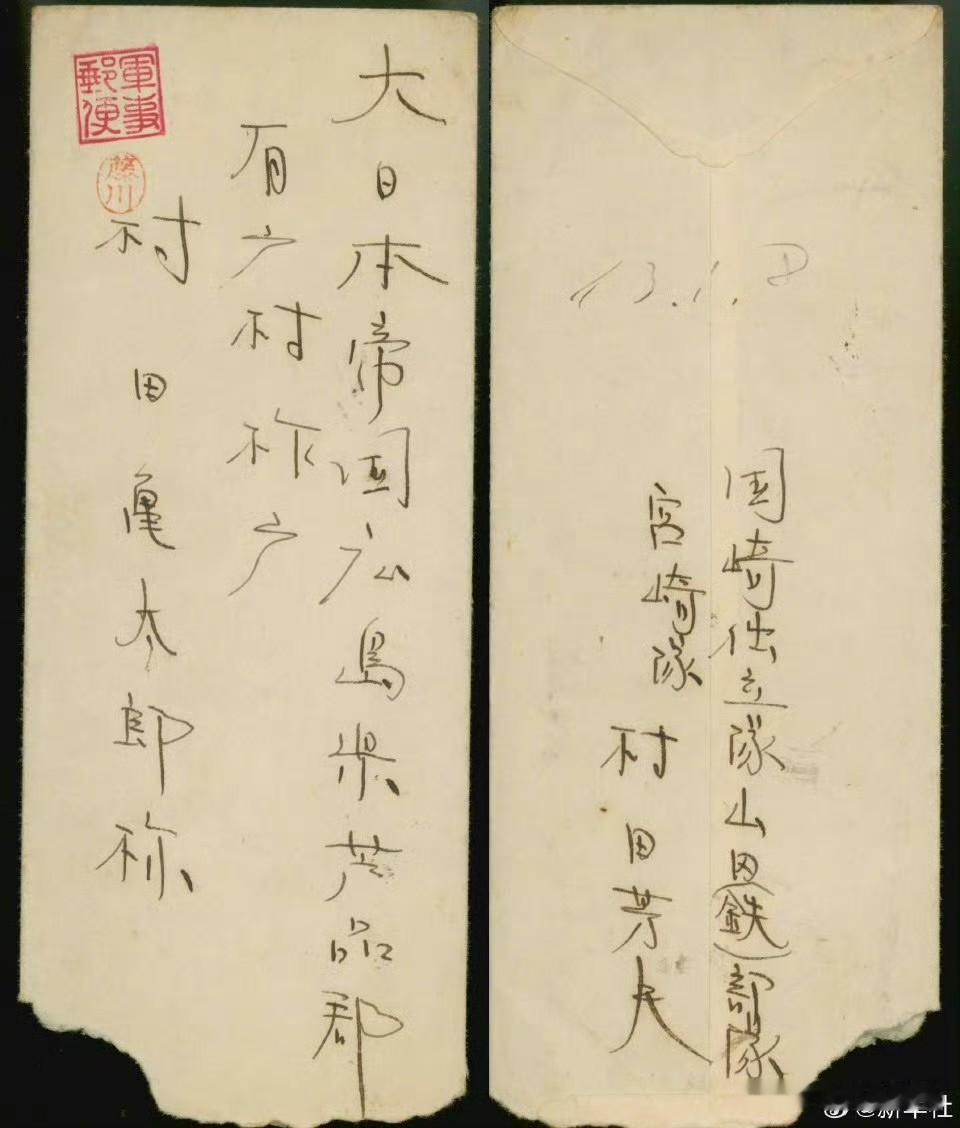 軍事
郵便
藤川
大日本帝国広島県芦品郡
有广村柞广
村田亀太郎様
13.1.8
国崎仕立隊山田(鉄)部隊
宮崎隊 村田芳夫
@新华社